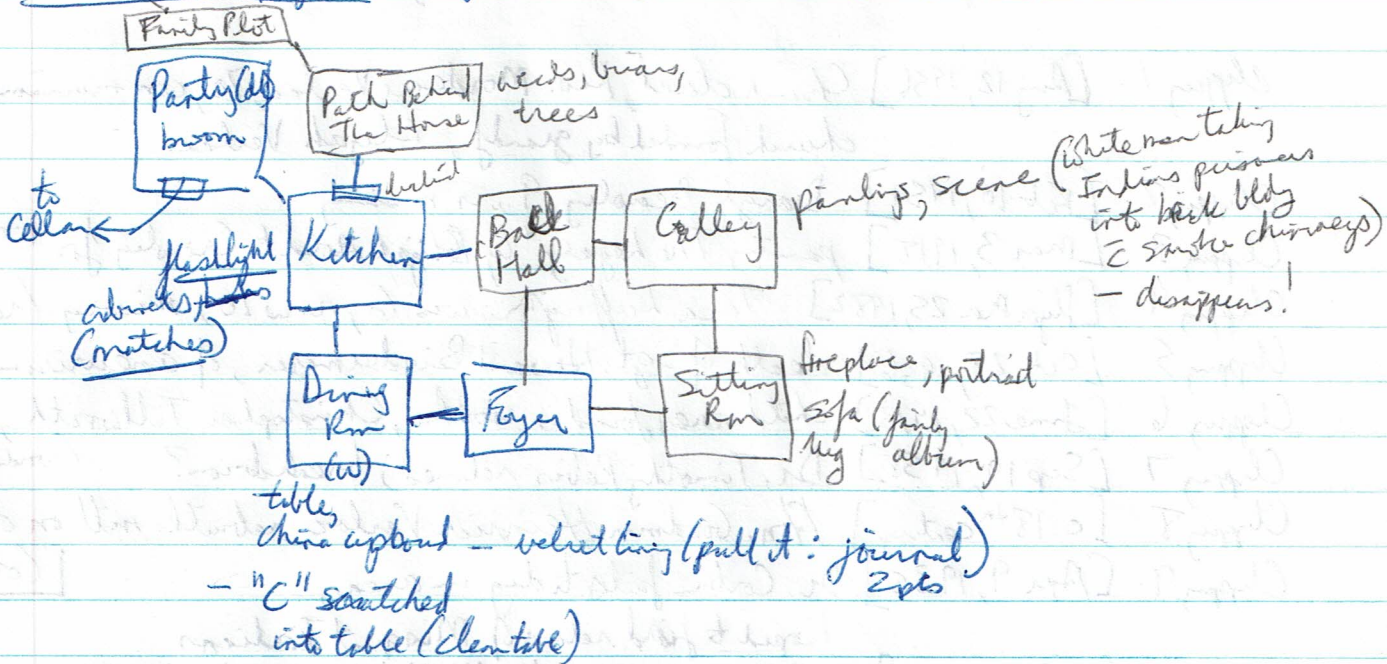 Family Plot
Pantry (d)
broom
Path Behind
The House
weeds, briars,
trees
to
Cellar
behind
Kitchen
flashlight
cabinets,
(matches)
Back
Hall
Gallery
paintings, scene (White men taking
Indians prisoners
into brick bldg
c̄ smoke chimneys)
— disappears!
Dining
Rm
(W)
Foyer
Sitting
Rm
fireplace, portrait
sofa (family
rug album)
tables
china cupboard — velvet lining (pull it: journal)
2 pts
— "C" scratched
into table (clean table)